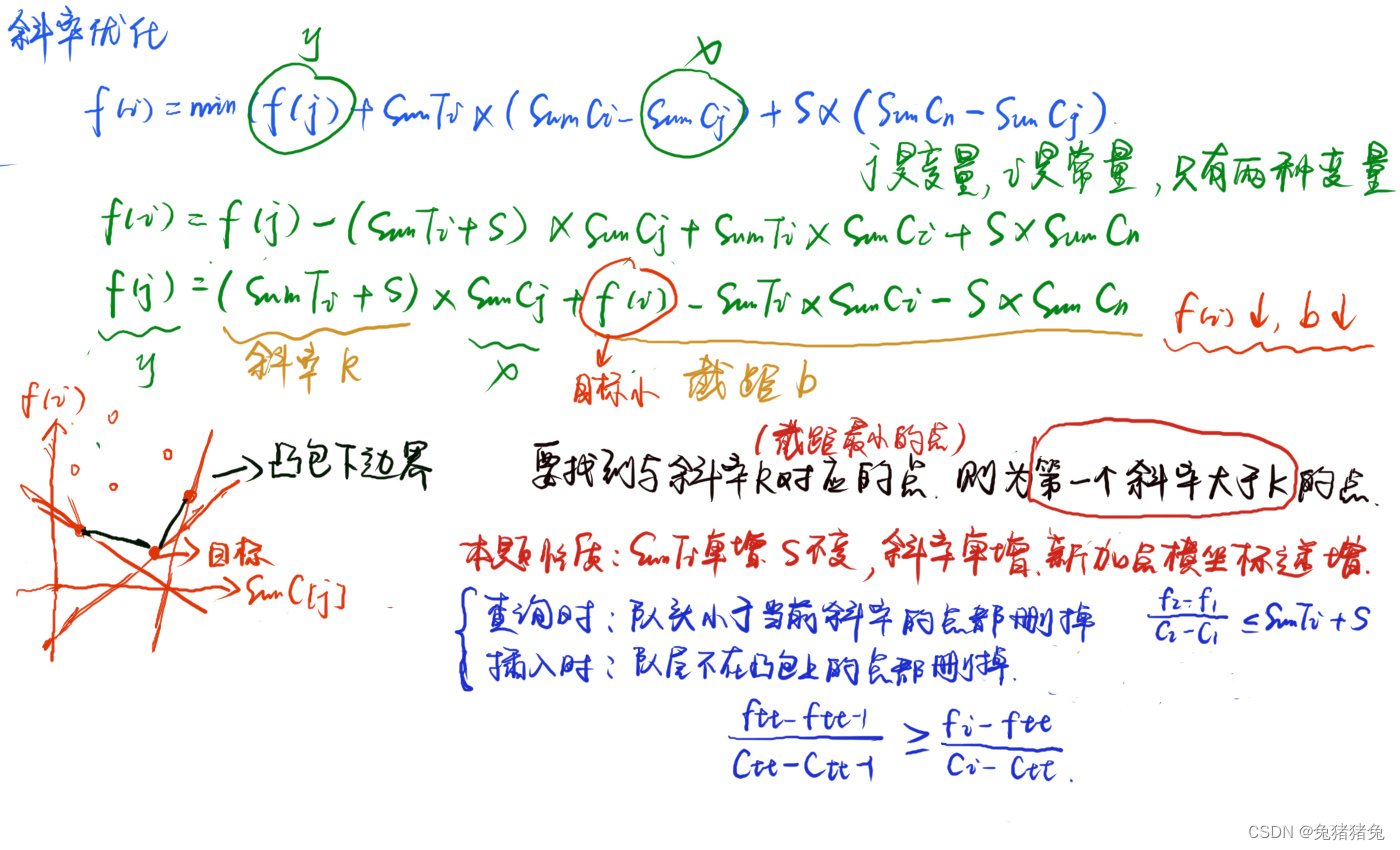 斜率优化
y x
f(i) = min(f(j) + SumTi × (SumCi - SumCj) + S × (SumCn - SumCj).
j是变量, i是常量, 只有两种变量
f(i) = f(j) - (SumTi + S) × SumCj + SumTi × SumCi + S × SumCn
f(j) = (SumTi + S) × SumCj + f(i) - SumTi × SumCi - S × SumCn f(i)↓, b↓
y 斜率k x 目标小 截距b
f(i)
(截距最小的点)
凸包下边界 要找到与斜率k对应的点. 则为第一个斜率大于k的点.
目标
SumC[j]
本题性质: SumTi单增 S不变, 斜率单增. 新加点横坐标递增.
查询时: 队头小于当前斜率的点都删掉 (f2-f1)/(C2-C1) ≤ SumTi + S
插入时: 队尾不在凸包上的点都删掉.
(ftt - ftt-1)/(Ctt - Ctt-1) ≥ (fi - ftt)/(Ci - Ctt).
CSDN @兔猪猪兔